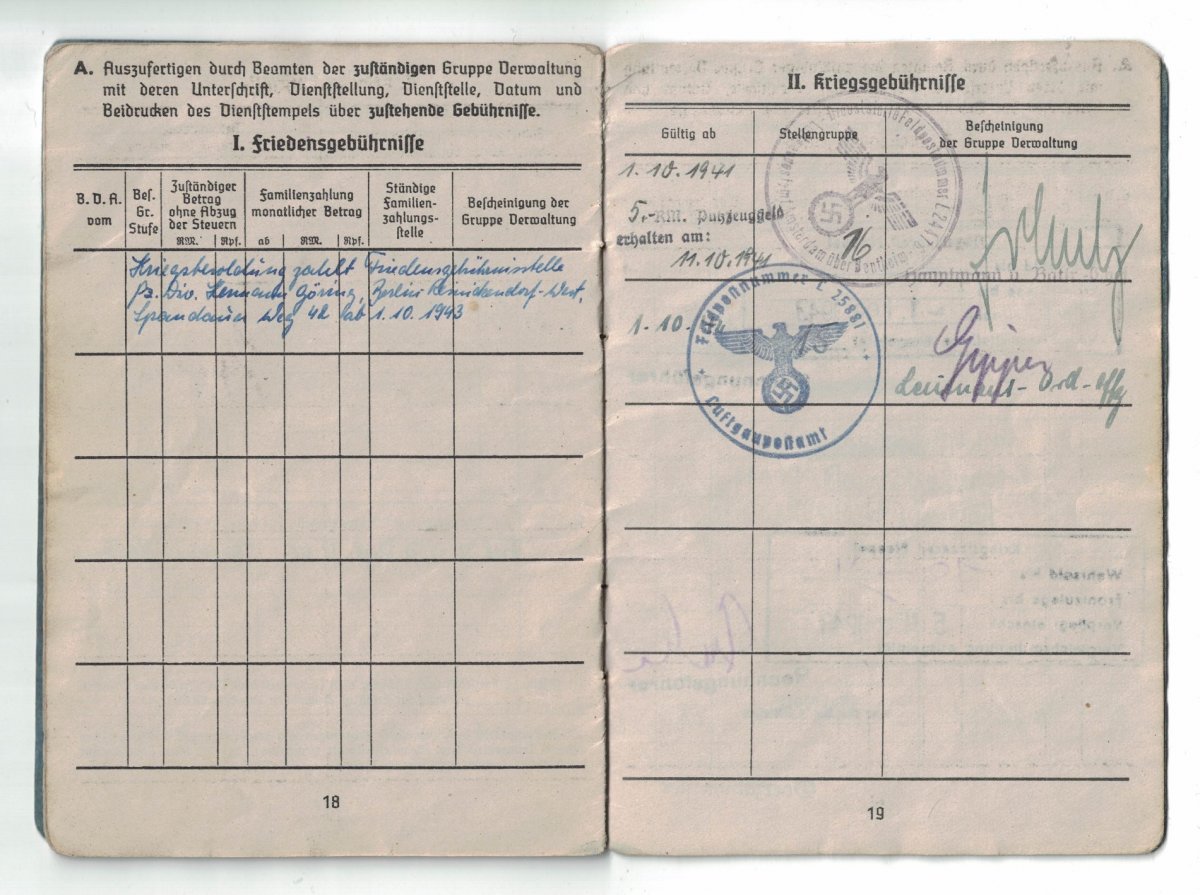 A. Auszufertigen durch Beamten der zuständigen Gruppe Verwaltung
mit deren Unterschrift, Dienststellung, Dienststelle, Datum und
Beidrucken des Dienststempels über zustehende Gebührnisse.
I. Friedensgebührnisse
B. D. A. vom
Bes. Gr. Stufe
Zuständiger Betrag ohne Abzug der Steuern
RM. Rpf.
Familienzahlung monatlicher Betrag
ab RM. Rpf.
Ständige Familien-zahlungs-stelle
Bescheinigung der Gruppe Verwaltung
Kriegsbesoldung zahlt Friedensgebührnisstelle
Pz. Div. Hermann Göring, Berlin Reinickendorf-West,
Spandauer Weg 42 ab 1.10.1943
18
II. Kriegsgebührnisse
Gültig ab
Stellengruppe
Bescheinigung
der Gruppe Verwaltung
1.10.1941
16
5,-RM. Putzzeuggeld
erhalten am:
11.10.1941
Hauptmann u.
Feldpostnummer L 25881
Luftgaupostamt
1.10.
Leutnant
19